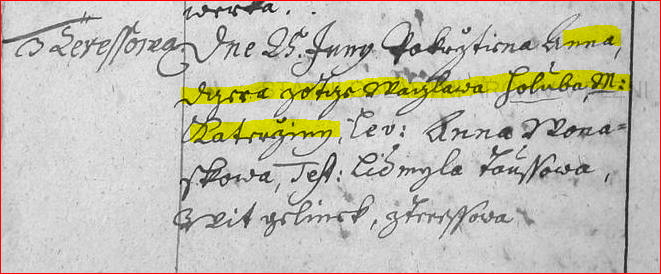 werka.
z Teressowa Dne 25. Juny Pokrztiena Anna,
dczera gotge Waczlawa Holuba, M:
Katerziny, Lev: Anna Wona=
skowa, Test: Lidmyla Taussowa,
Wit Gelinek, z Teressowa